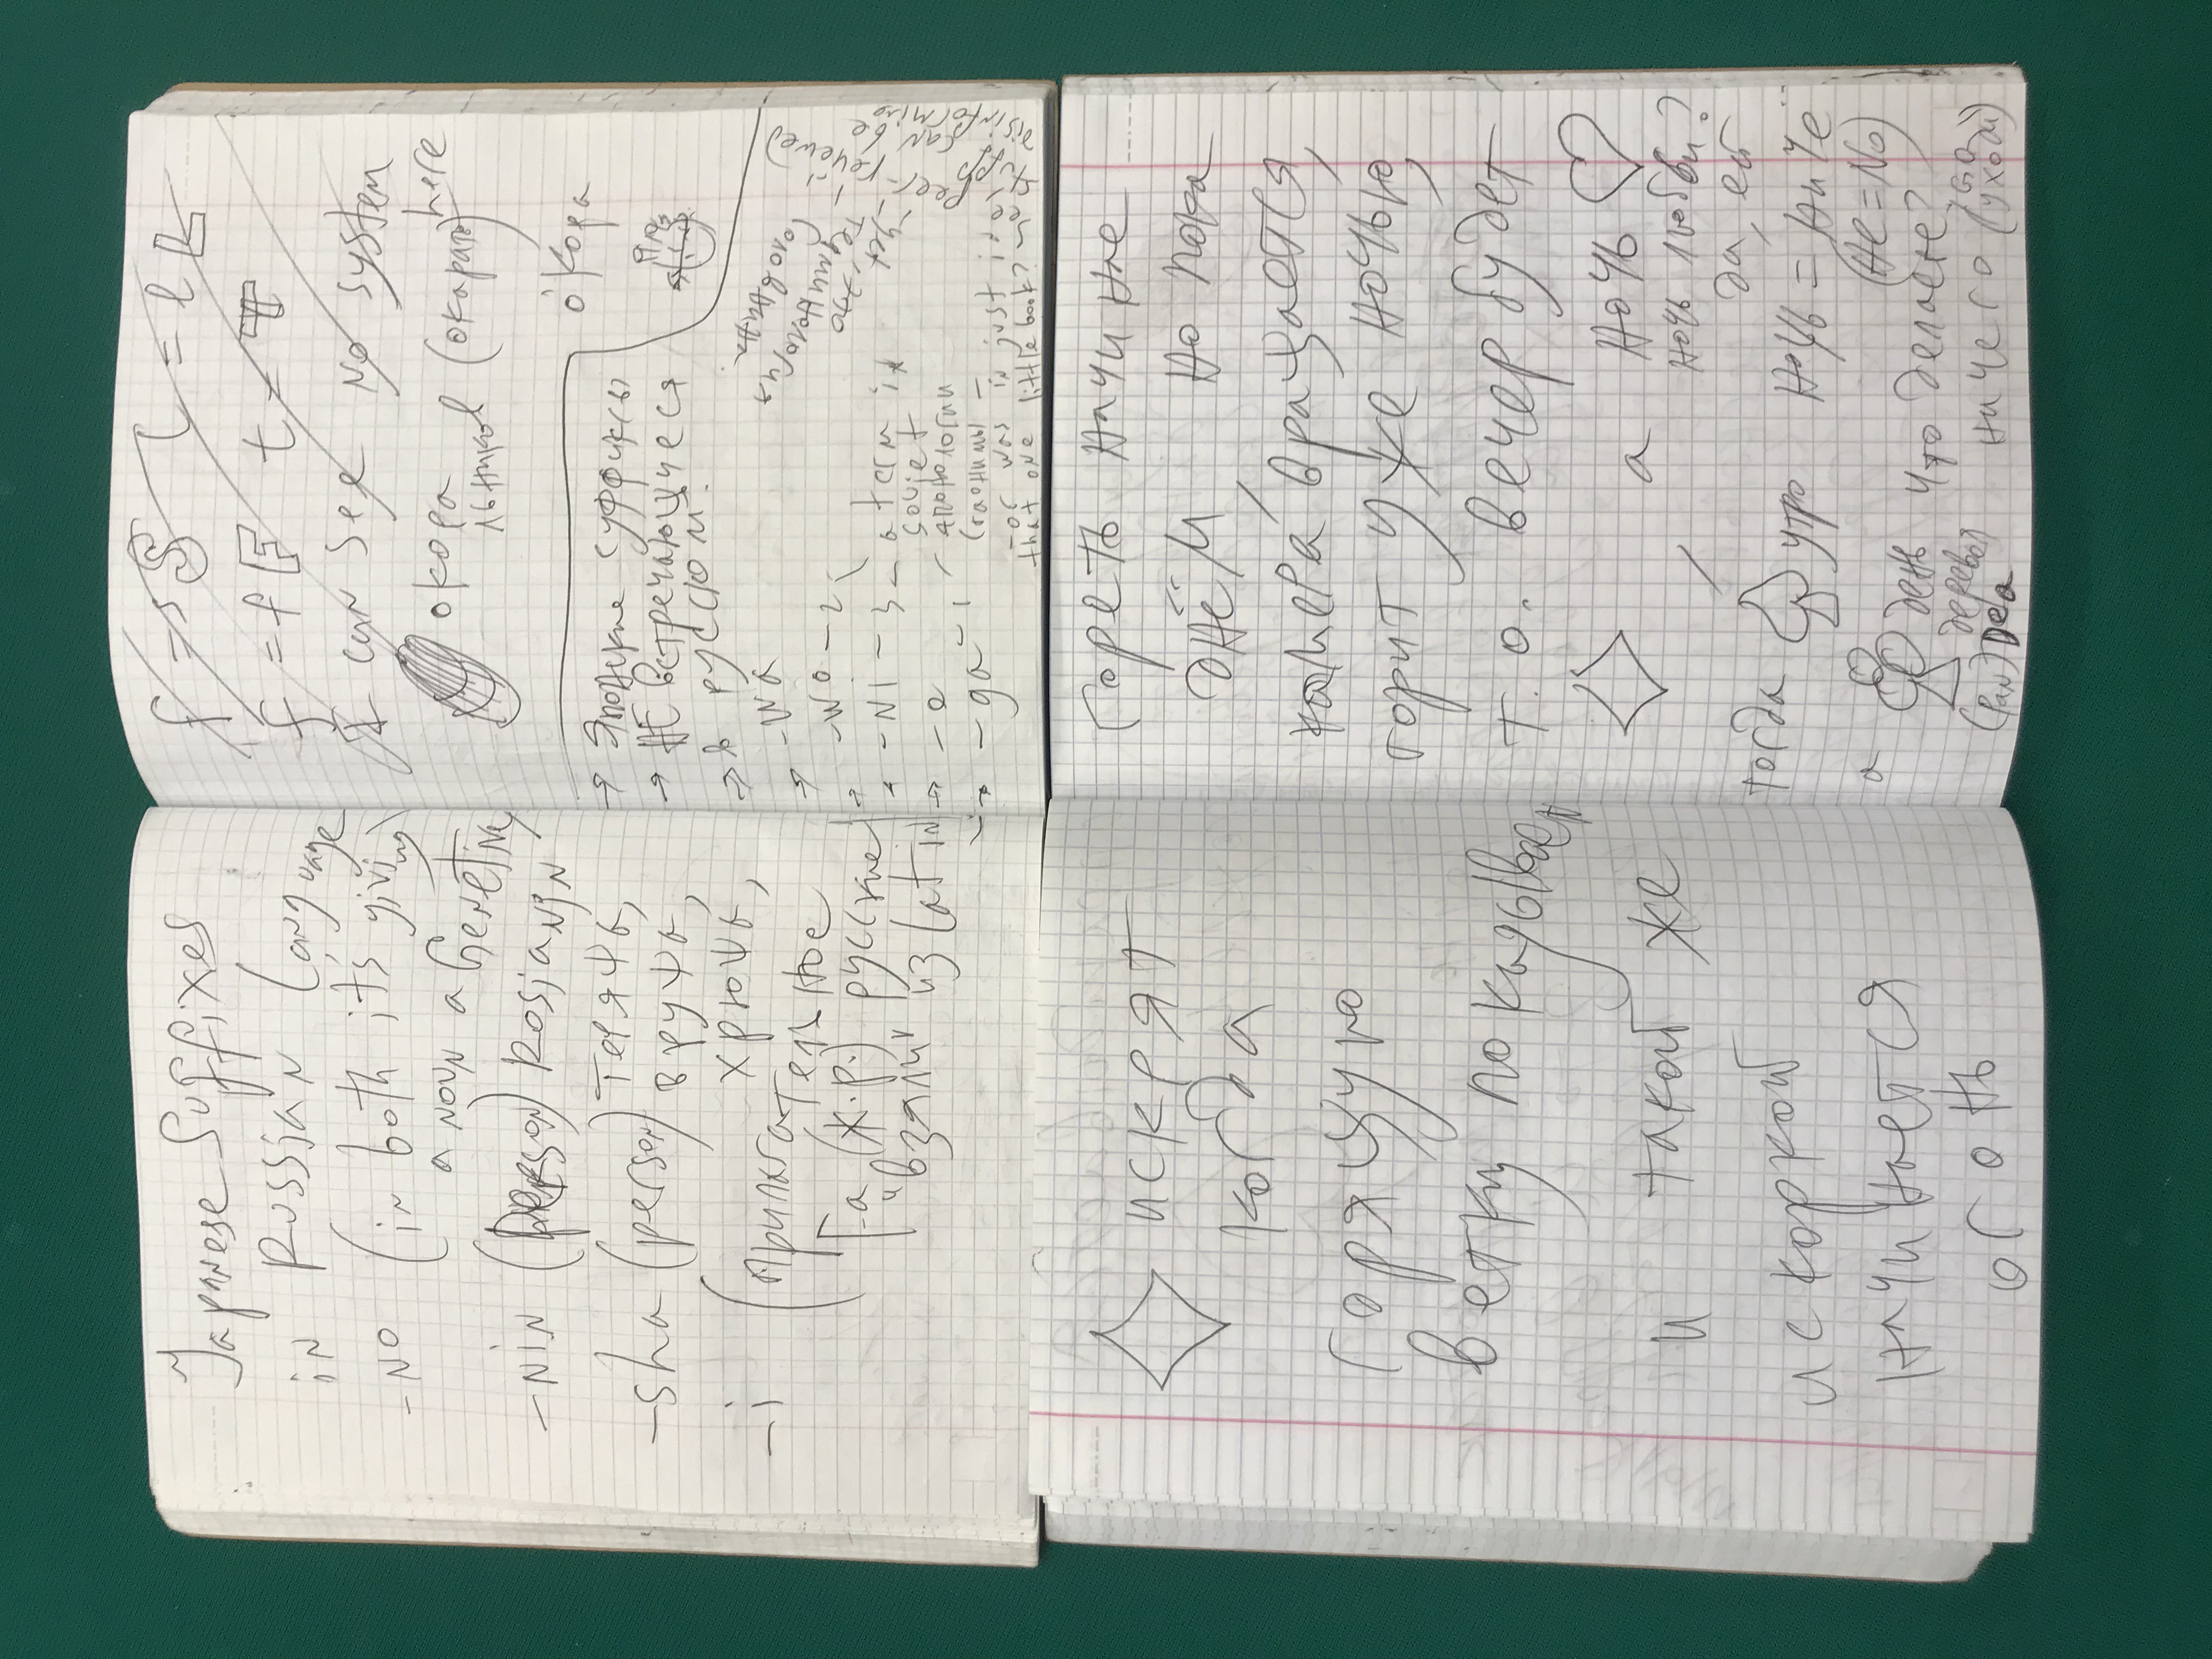 Japanese Suffixes
in Russian Language
-NO (in both it's giving
a NOUN a Genetive)
-NiN (person) RosiaNiN
-sha (person) теряша,
вруша,
хрюша,
-i (прилага
тельное
-а (ж.р.) русские
"взяли" из latin
f = s S l = l L
f = f F t = T
I can see no system
here
окора
льников (окарать)
о́кора
→ Японские суффиксы
→ НЕ встречающиеся
→ в русском:
→ -wa
-wo - 2
-Ni - 3 - a term in
soviet
→ -e японологии
→ -ga - 1
-or was in just in
that one little book?
See, peer-reviewed
stuff can be
disinforming
искрят
когда
горящую
ветку покадываем
и такой же
искоркой
начинается
огонь
гореть начине
днём, но пока
камера вращается,
горит уже ночью,
т.о. вечер будет
а ночь
ночь любви?
да, ей
тогда утро ночь = ничё
(не = No)
а день что делаете?
деревья
ничего (уходи)
(Pan) Dea